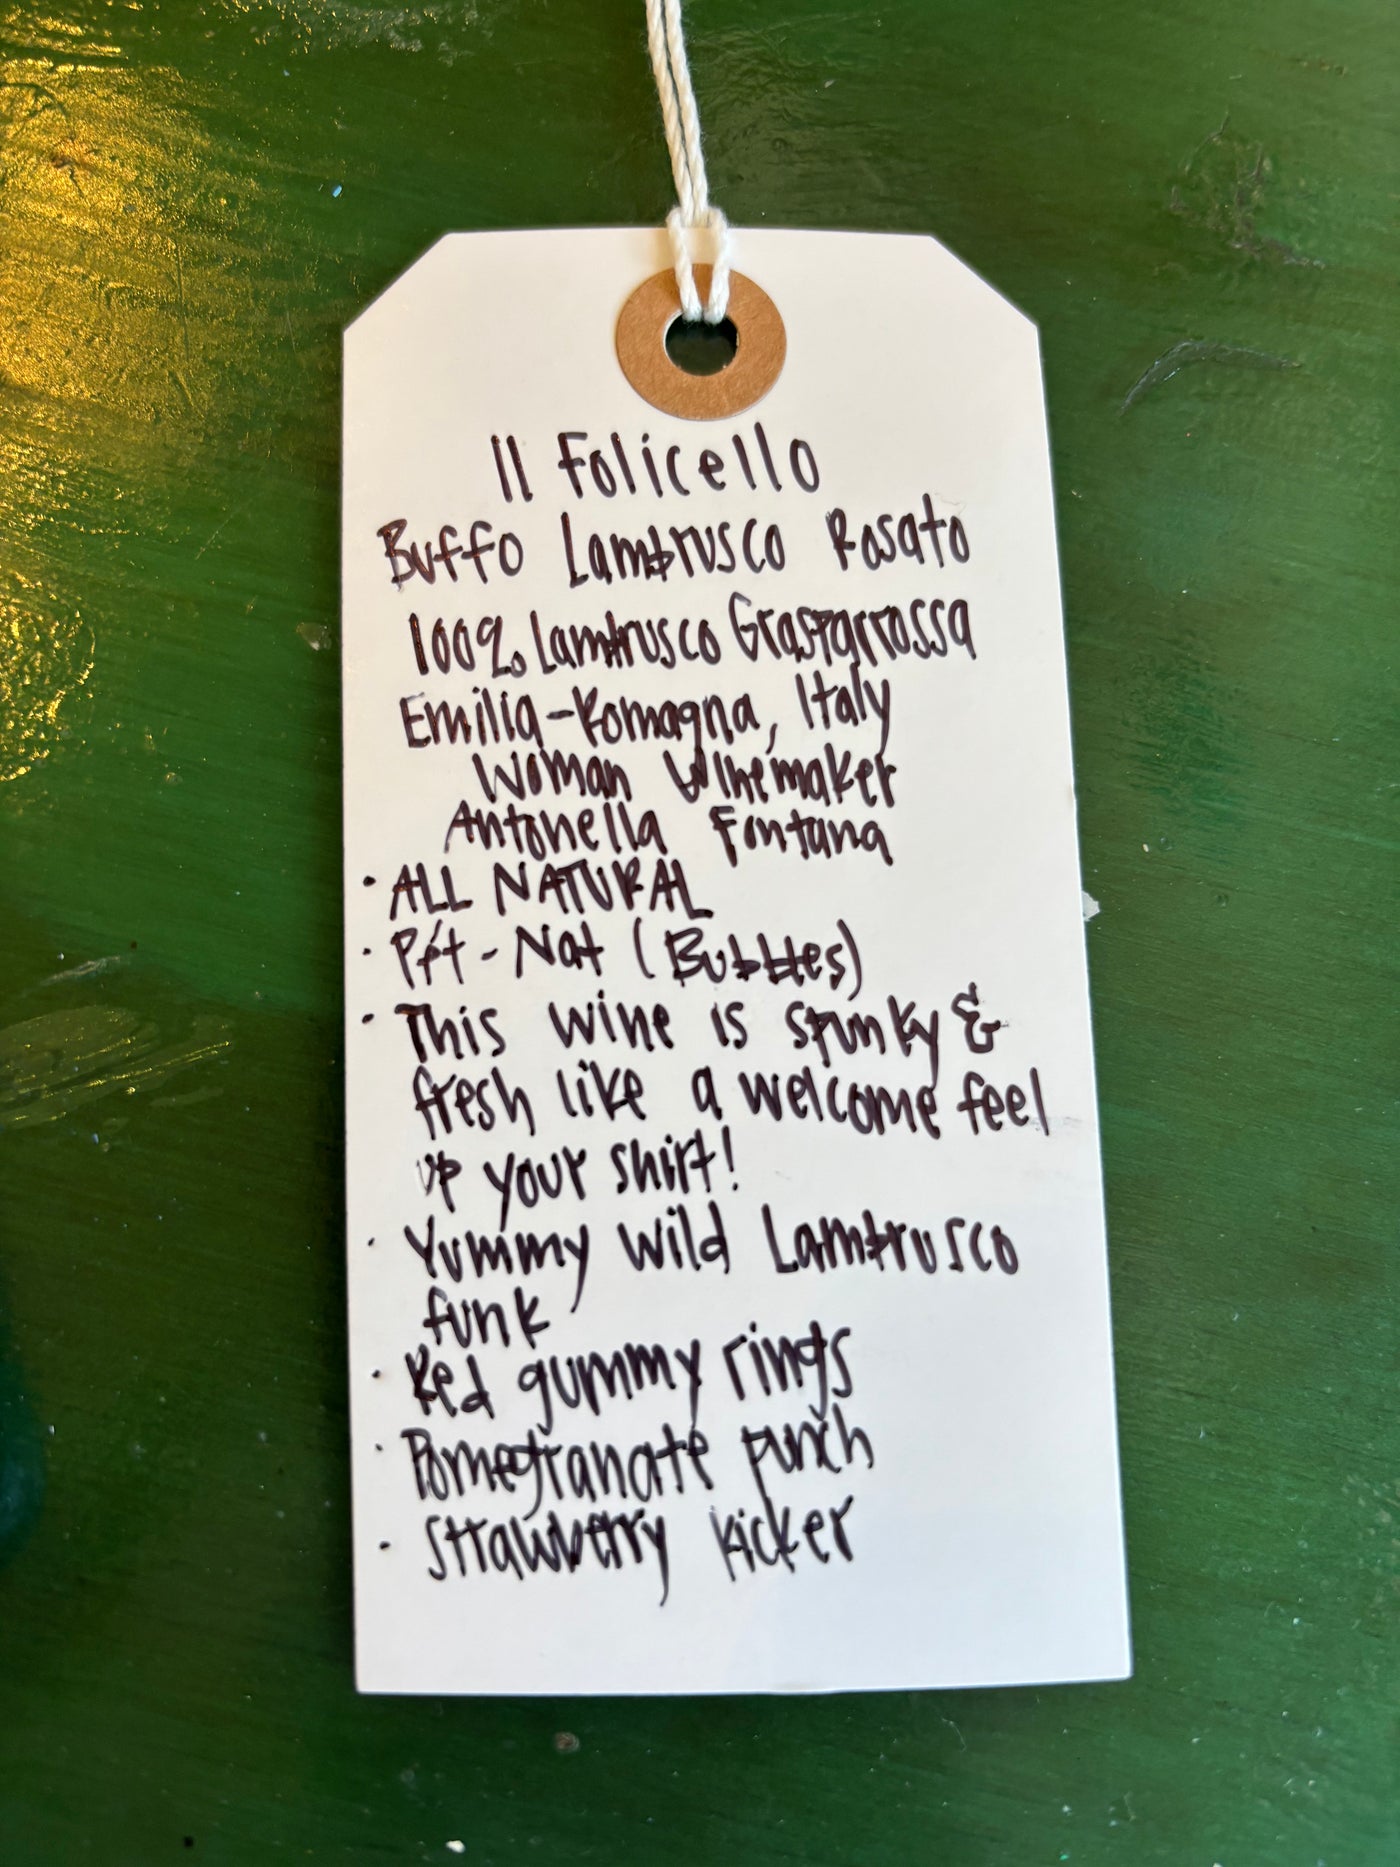 Il Folicello
Buffo Lambrusco Rosato
100% Lambrusco Grasparrossa
Emilia-Romagna, Italy
Woman Winemaker
Antonella Fontana
• ALL NATURAL
• Pét-Nat (Bubbles)
• This wine is spunky &
fresh like a welcome feel
up your shirt!
• Yummy wild Lambrusco
funk
• Red gummy rings
• Pomegranate punch
• Strawberry kicker